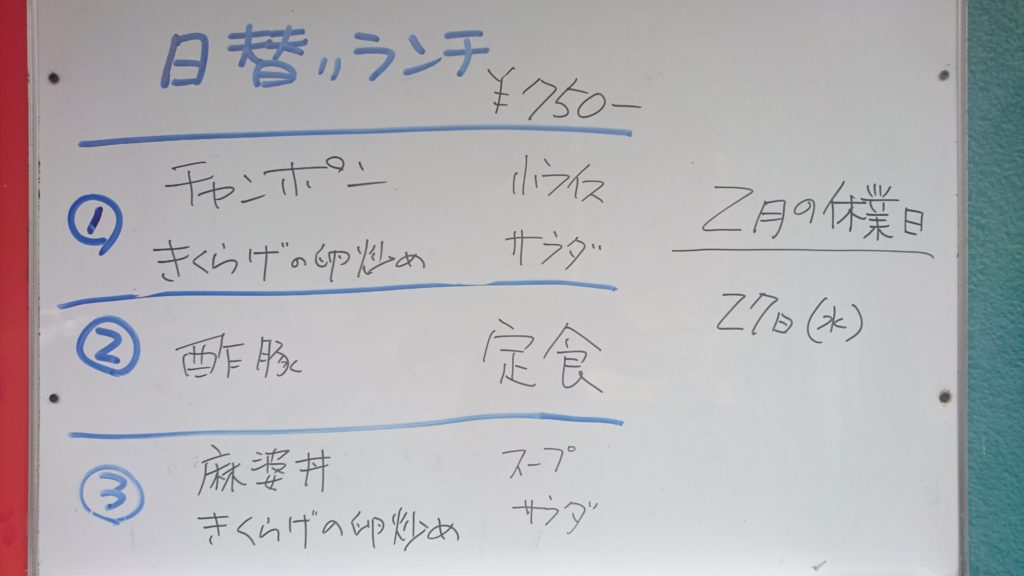 日替りランチ
¥750ー
① チャンポン 小ライス
きくらげの卵炒め サラダ
② 酢豚 定食
③ 麻婆丼 スープ
きくらげの卵炒め サラダ
2月の休業日
27日(水)